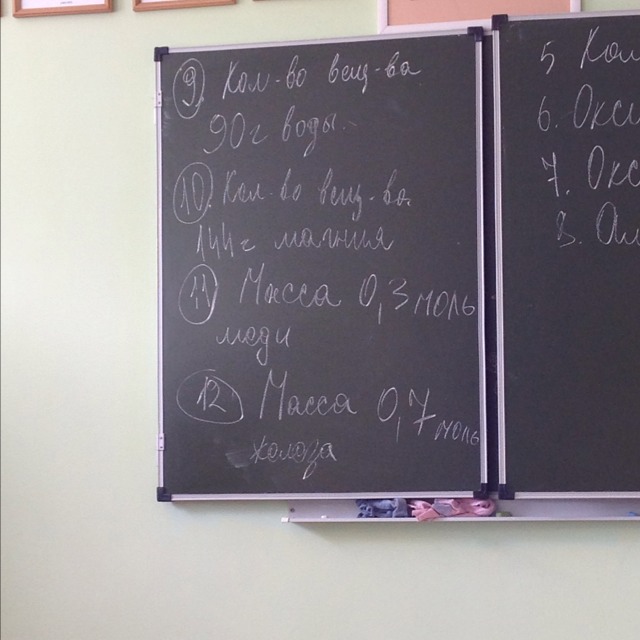 9. Кол-во вещ-ва
90 г воды.
10. Кол-во вещ-ва
144 г магния
11 Масса 0,3 моль
меди
12 Масса 0,7 моль
5 Кол
6. Окси
7. Окс
8. Ал